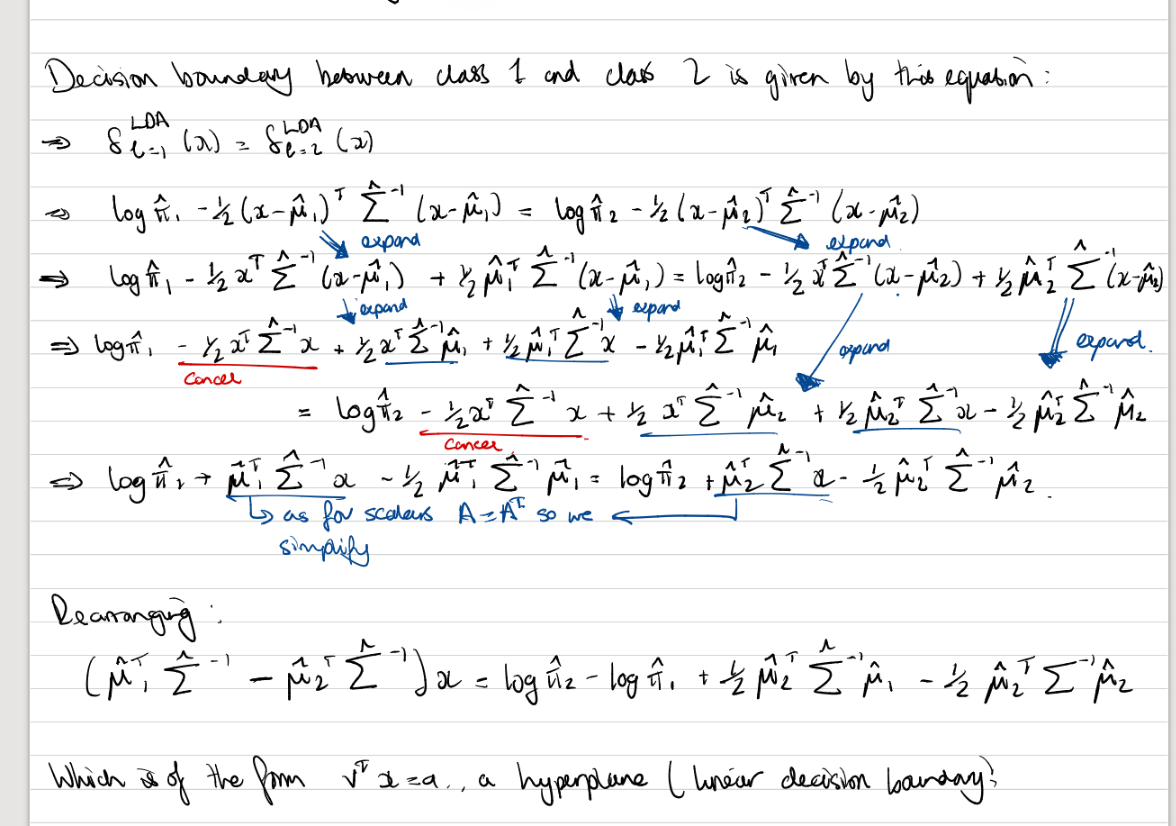 Decision boundary between class 1 and class 2 is given by this equation:
⇒ δ_{ℓ=1}^{LDA}(x) = δ_{ℓ=2}^{LDA}(x)
⇒ log π̂₁ - ½(x-μ̂₁)ᵀ Σ̂⁻¹ (x-μ̂₁) = log π̂₂ - ½(x-μ̂₂)ᵀ Σ̂⁻¹ (x-μ̂₂)
expand expand
⇒ log π̂₁ - ½ xᵀ Σ̂⁻¹ (x-μ̂₁) + ½ μ̂₁ᵀ Σ̂⁻¹ (x-μ̂₁) = log π̂₂ - ½ xᵀ Σ̂⁻¹ (x-μ̂₂) + ½ μ̂₂ᵀ Σ̂⁻¹ (x-μ̂₂)
expand expand
⇒ log π̂₁ - ½ xᵀ Σ̂⁻¹ x + ½ xᵀ Σ̂⁻¹ μ̂₁ + ½ μ̂₁ᵀ Σ̂⁻¹ x - ½ μ̂₁ᵀ Σ̂⁻¹ μ̂₁ expand expand.
cancel
= log π̂₂ - ½ xᵀ Σ̂⁻¹ x + ½ xᵀ Σ̂⁻¹ μ̂₂ + ½ μ̂₂ᵀ Σ̂⁻¹ x - ½ μ̂₂ᵀ Σ̂⁻¹ μ̂₂
cancel
⇒ log π̂₁ + μ̂₁ᵀ Σ̂⁻¹ x - ½ μ̂₁ᵀ Σ̂⁻¹ μ̂₁ = log π̂₂ + μ̂₂ᵀ Σ̂⁻¹ x - ½ μ̂₂ᵀ Σ̂⁻¹ μ̂₂.
↳ as for scalars A=Aᵀ so we
simplify
Rearranging:
(μ̂₁ᵀ Σ̂⁻¹ - μ̂₂ᵀ Σ̂⁻¹)x = log π̂₂ - log π̂₁ + ½ μ̂₂ᵀ Σ̂⁻¹ μ̂₁ - ½ μ̂₂ᵀ Σ⁻¹ μ̂₂
Which is of the form vᵀx=a., a hyperplane (linear decision boundary)